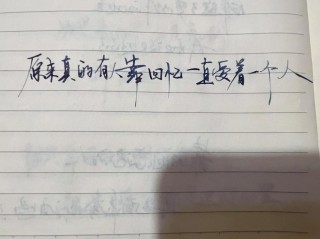 原来真的有人靠回忆一直爱着一个人